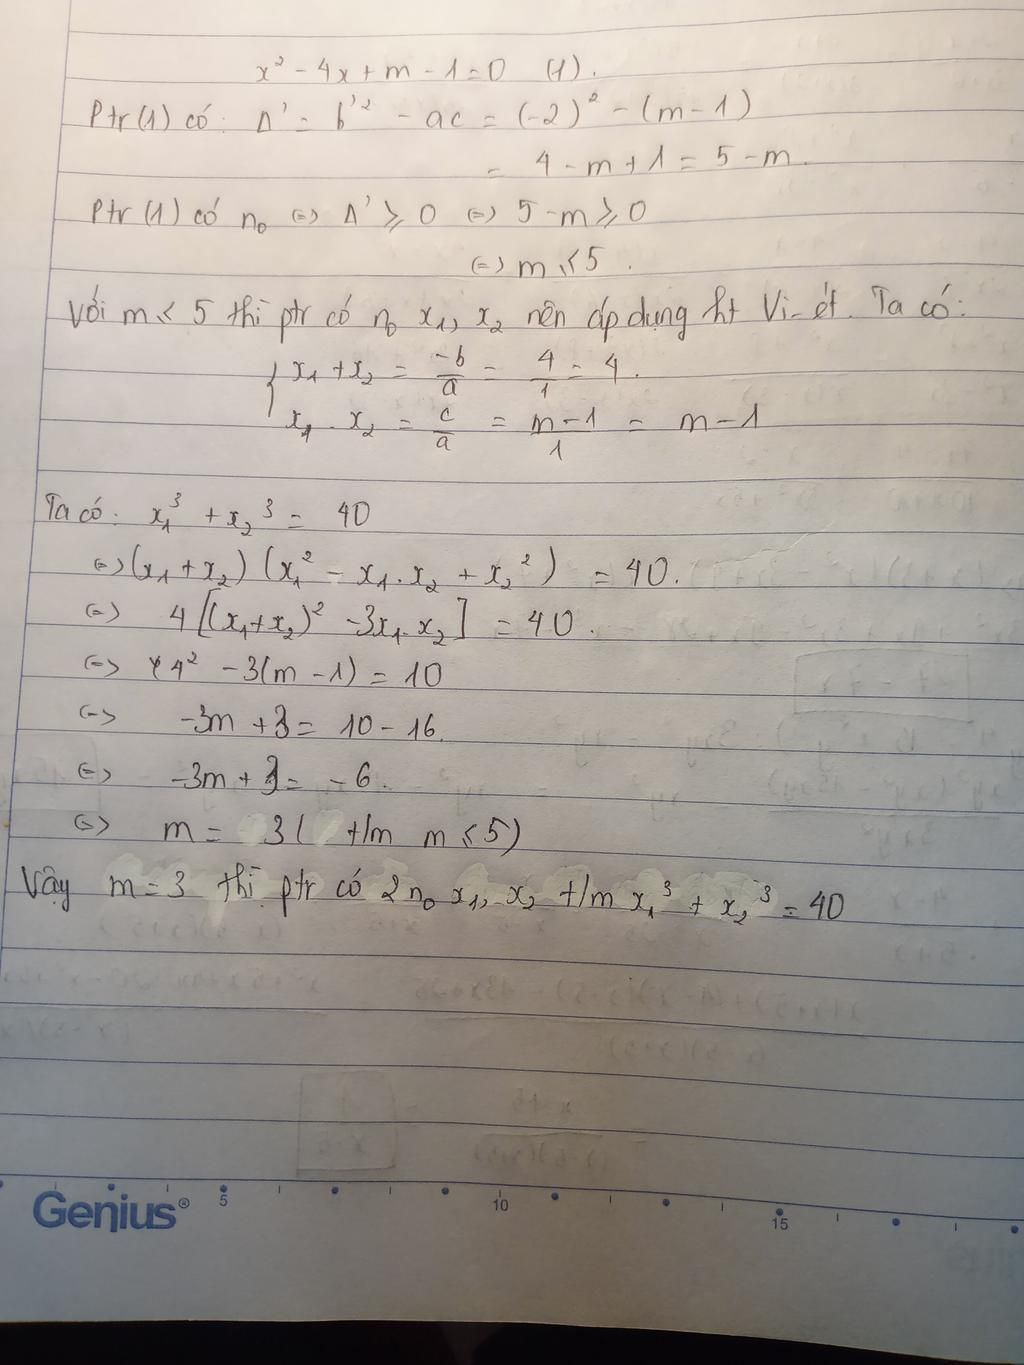 x² - 4x + m - 1 = 0 (1).
Ptr (1) có: Δ' = b'² - ac = (-2)² - (m - 1)
= 4 - m + 1 = 5 - m.
Ptr (1) có n₀ (=) Δ' ⩾ 0 (=) 5 - m ⩾ 0
(=) m ⩽ 5 .
Với m ⩽ 5 thì ptr có n₀ x₁, x₂ nên áp dụng ht Vi-ét. Ta có:
{ x₁ + x₂ = -b/a = 4/1 = 4.
x₁ . x₂ = c/a = m-1/1 = m - 1
Ta có: x₁³ + x₂³ = 40
(=) (x₁ + x₂) (x₁² - x₁.x₂ + x₂²) = 40.
(=) 4 [(x₁+x₂)² - 3x₁.x₂] = 40.
(=) 4² - 3(m - 1) = 10
(=) -3m + 3 = 10 - 16.
(=) -3m + 3 = -6.
(=) m = 3 ( t/m m ⩽ 5)
Vậy m = 3 thì ptr có 2 n₀ x₁, x₂ t/m x₁³ + x₂³ = 40
Genius® 5 10 15